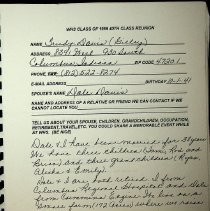 WHS CLASS OF 1959 45TH CLASS REUNION
NAME Trudy Davis (Gilley)
ADDRESS 8091 West 930 South
Columbus, Indiana ZIP CODE 47201
PHONE (812) 522-8274 BIRTHDAY 10-1-41
SPOUSE'S NAME Dale Davis
NAME AND ADDRESS OF A RELATIVE OR FRIEND WE CAN CONTACT IF WE
CANNOT LOCATE YOU.
TELL US ABOUT YOUR SPOUSE, CHILDREN, GRANDCHILDREN, OCCUPATION,
RETIREMENT, TRAVEL, ETC. YOU COULD SHARE A MEMORABLE EVENT WHILE
AT WHS.
Dale & I have been married for years
We have three children
Brian) and three grandchildren (Ryan,
Alexis & Emily).
Dale & I are both retired. I from
Columbus Regional Hospital and Dale
from Cummins Engine. We have a
where we have